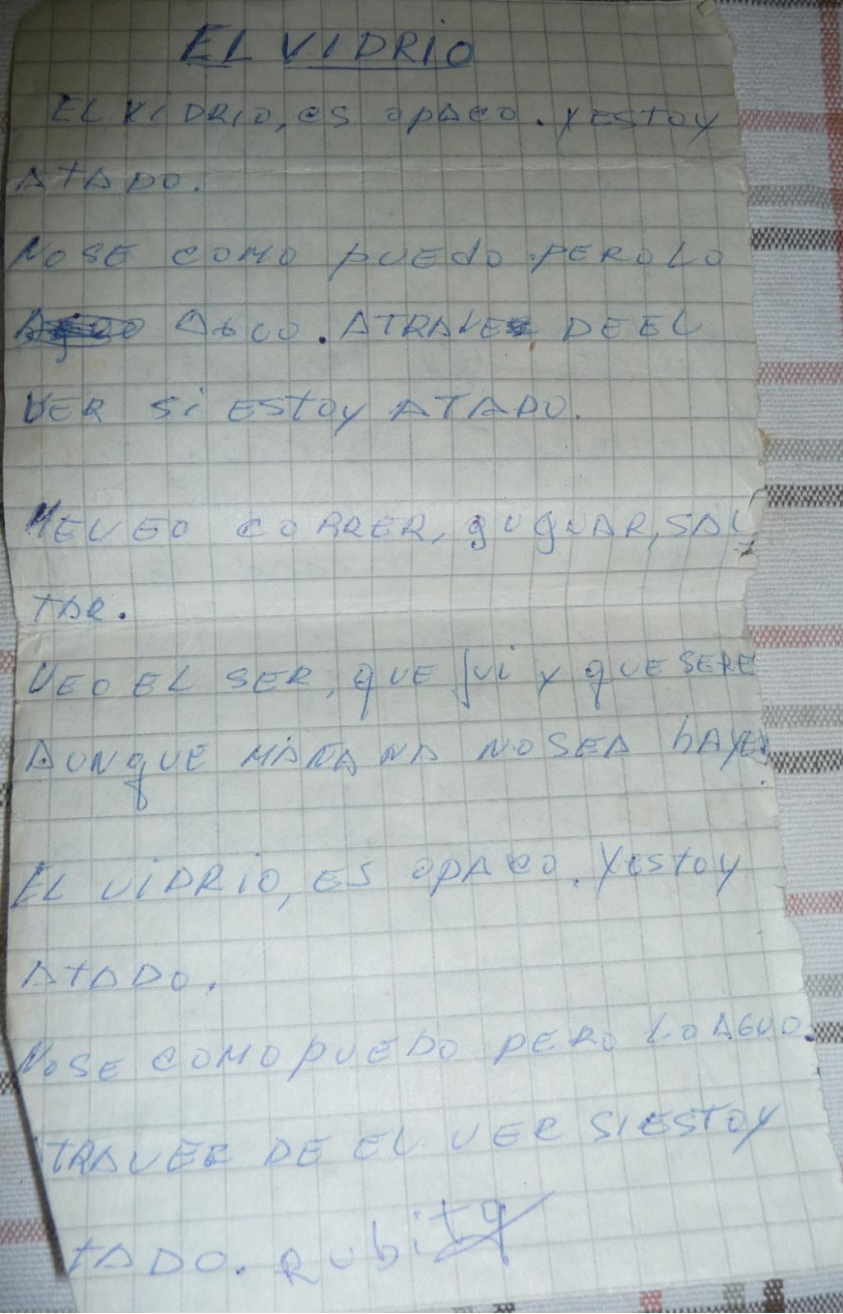 EL VIDRIO
EL VIDRIO, ES OPACO. Y ESTOY
ATADO.
NOSE COMO PUEdO PERO LO
AGUO. ATRAVEZ DE EL
VER Si ESTOY ATADO.
MEVEO CORRER, gUgUAR, SAL
TAR.
VEO EL SER, qUE fUi Y qUE SERE
AUNqUE MAÑANA NOSEA hAYER.
EL ViDRiO, ES OPACO. YESTOY
ATADO.
NOSE COMO PUEDO PERO LO AGUO.
TRAVEZ DE EL VER SIESTOY
TADO. RUbita